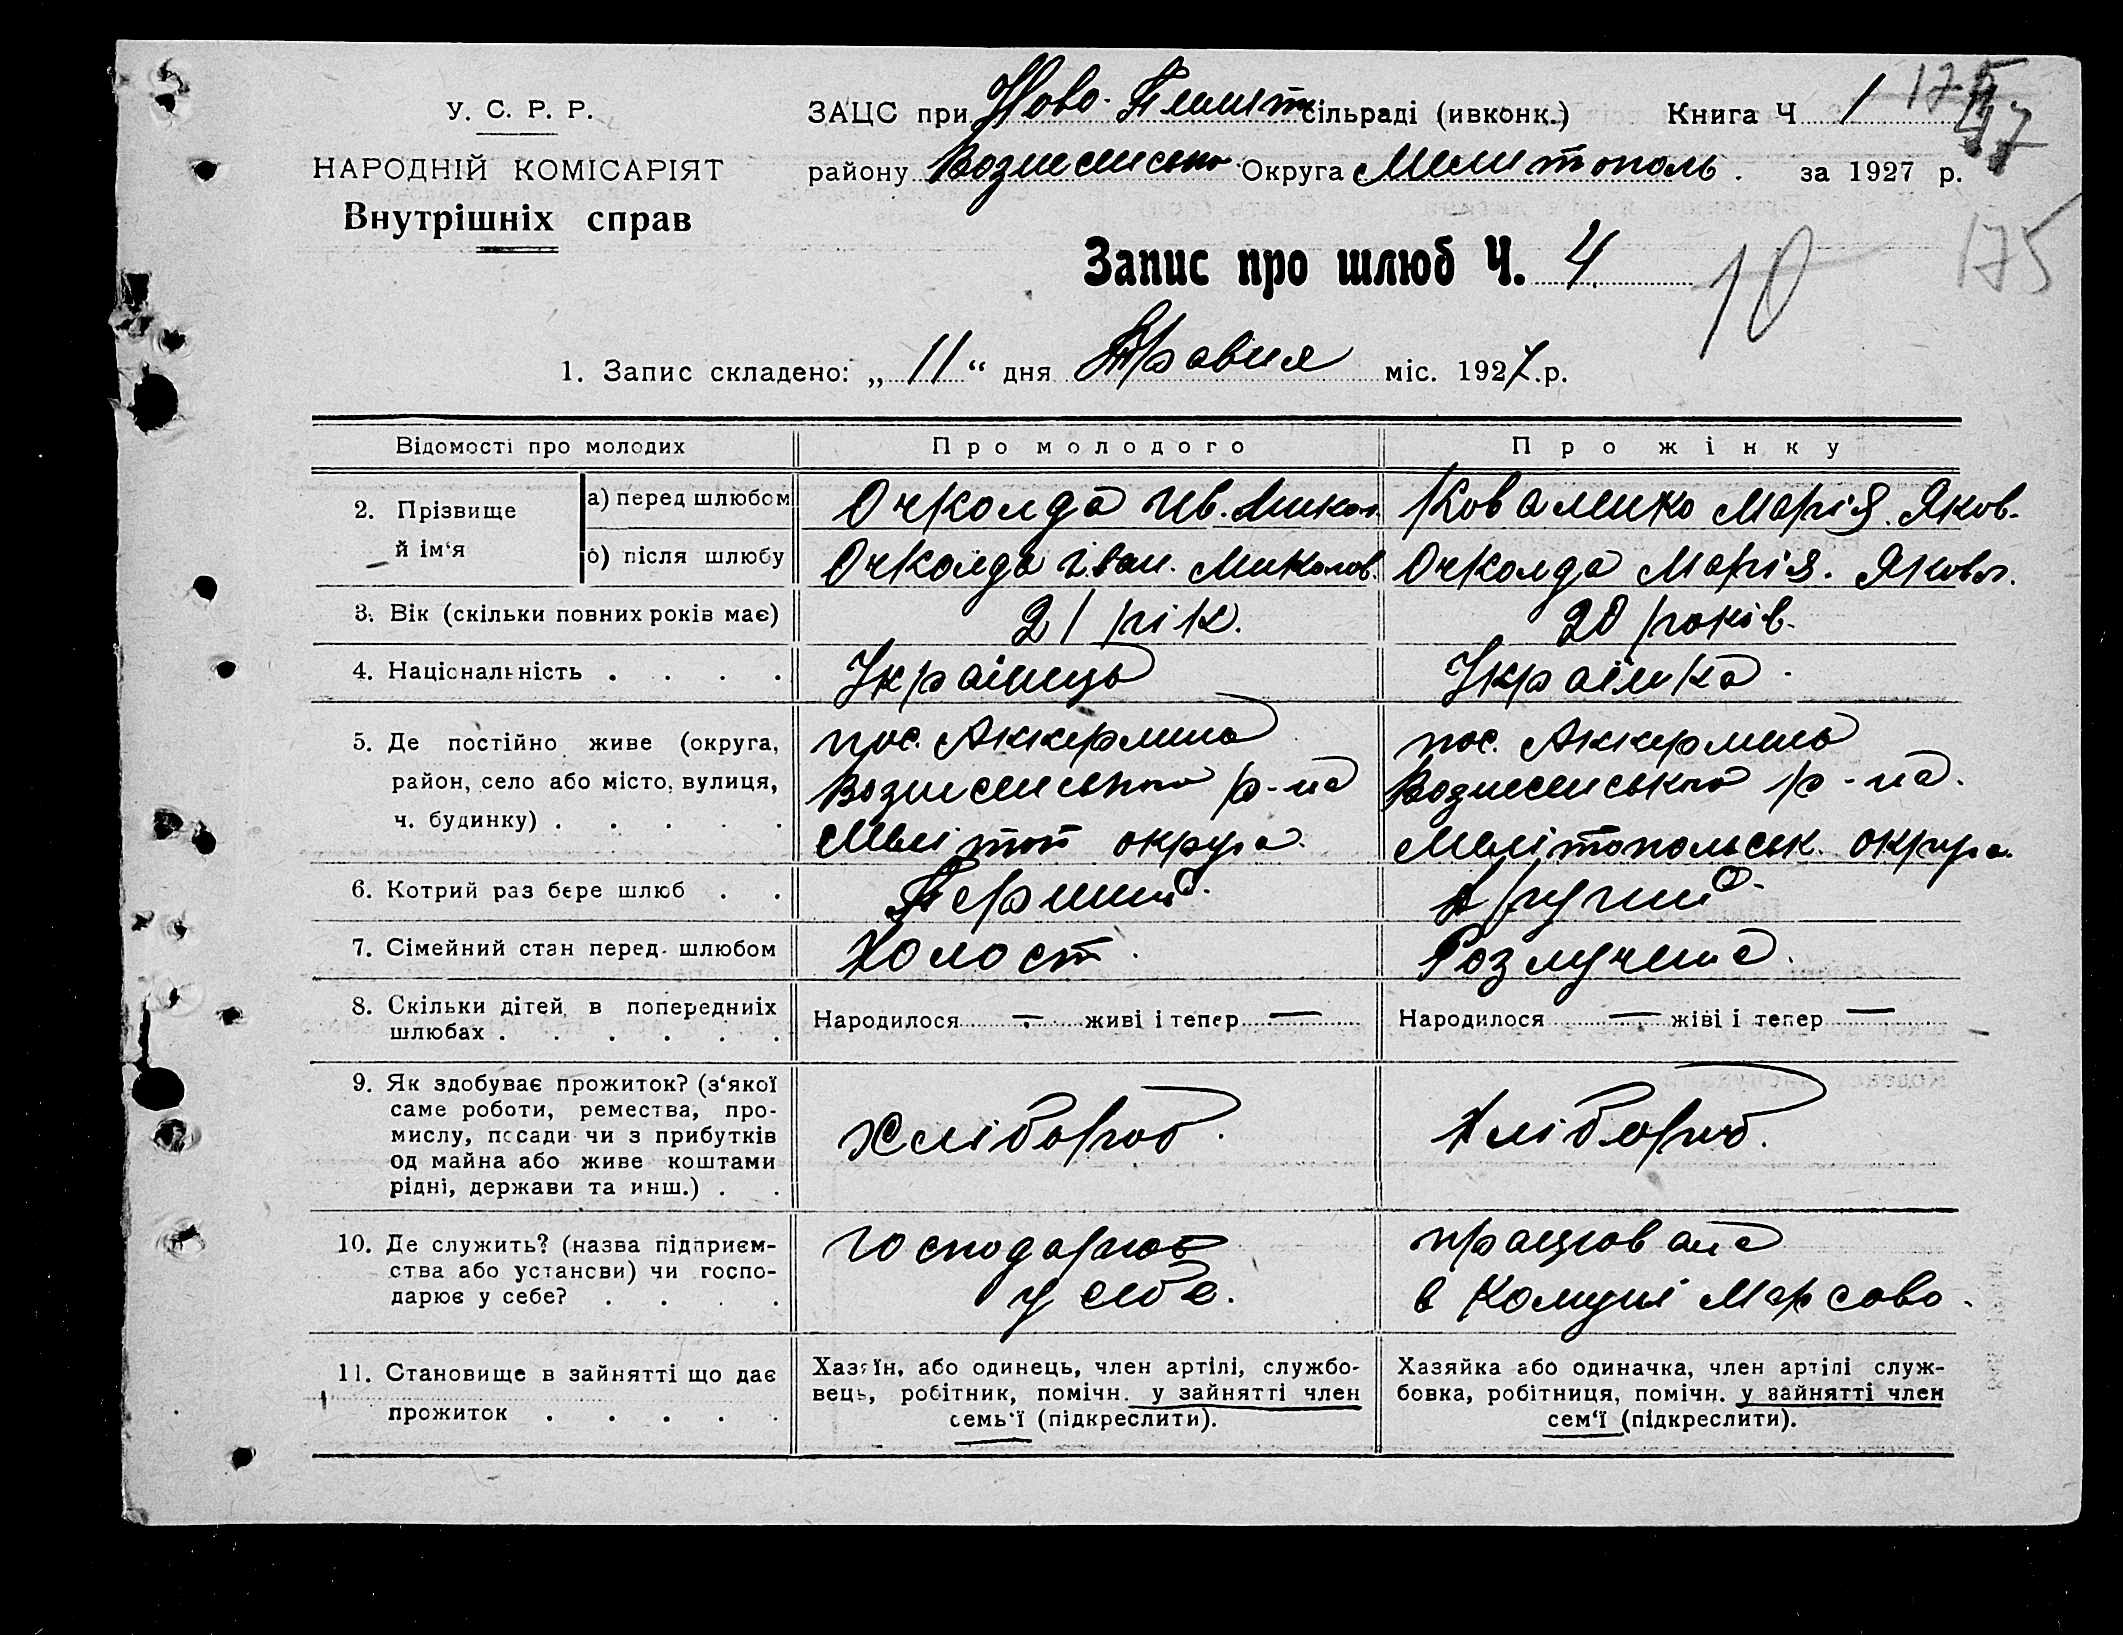 У. С. Р. Р.
НАРОДНІЙ КОМІСАРІЯТ
Внутрішніх справ
ЗАЦС при Ново- сільраді (ивконк.) Книга Ч 1
175
47
району Вознесенсько Округа Мелитополь. за 1927 р.
175
Запис про шлюб Ч. 4
10
1. Запис складено: „11“ дня Травня міс. 1927.р.
Відомості про молодих
Про молодого
Про жінку
2. Прізвище й ім'я
а) перед шлюбом
Очколда Ив. Микол.
Коваленко Марія. Яков.
б) після шлюбу
Очколда Іван. Миколов.
Очколда Марія. Яковл.
3. Вік (скільки повних років має)
21 рік.
20 років.
4. Національність . . . .
Українець
Українка.
5. Де постійно живе (округа,
район, село або місто, вулиця,
ч. будинку) . . . . .
пос. Аккермень
Вознесенського р-на
Меліт округа.
пос. Аккермень
Вознесенського р-на.
Мелітопольськ. округа.
6. Котрий раз бере шлюб . .
Перший.
Другий.
7. Сімейний стан перед шлюбом
Холост.
Розлучена.
8. Скільки дітей в попередніх
шлюбах . . . . . .
Народилося — живі і тепер —
Народилося — жіві і тепер —
9. Як здобуває прожиток? (з'якої
саме роботи, ремества, про-
мислу, посади чи з прибутків
од майна або живе коштами
рідні, держави та инш.) . .
хлібороб.
хлібороб.
10. Де служить? (назва підприєм-
ства або установи) чи госпо-
дарює у себе? . . . .
господарює
у себе.
працювала
в Комуні Марсово.
11. Становище в зайнятті що дає
прожиток . . . . .
Хазяїн, або одинець, член артілі, службо-
вець, робітник, помічн. у зайнятті член
семь'ї (підкреслити).
Хазяйка або одиначка, член артілі служ-
бовка, робітниця, помічн. у зайнятті член
сем'ї (підкреслити).